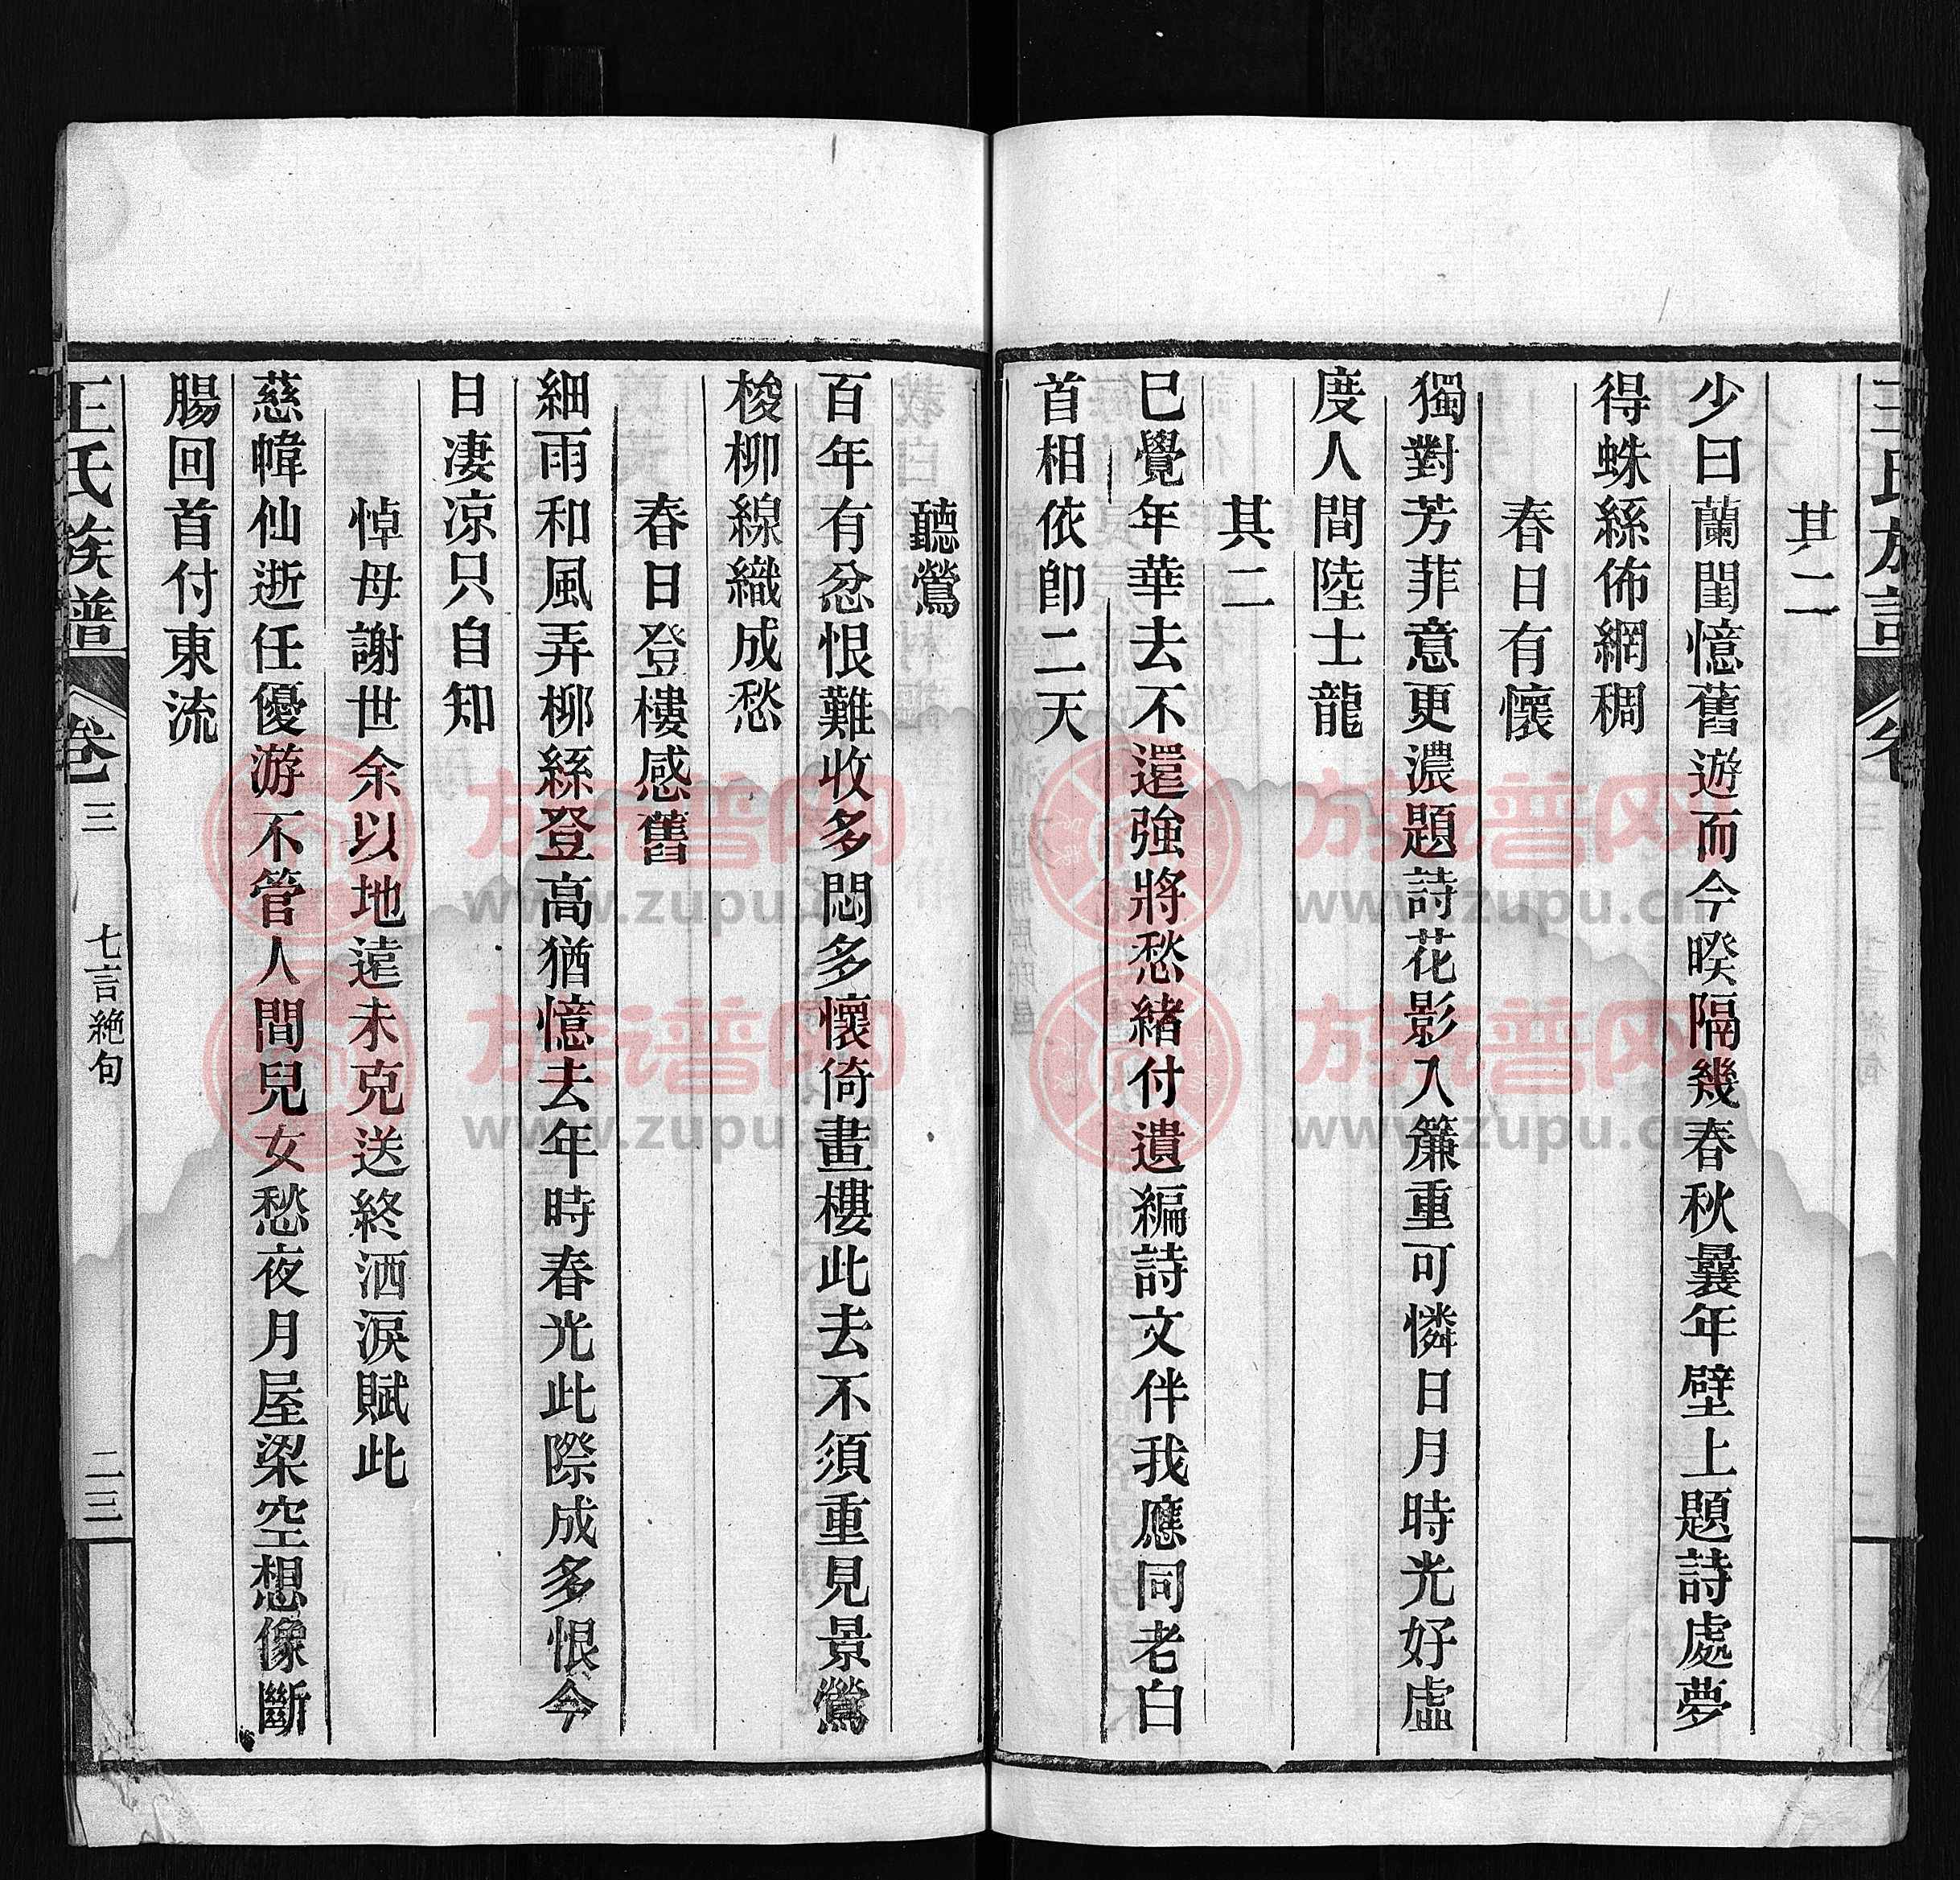 其二
少日蘭閨憶舊遊而今暌隔幾春秋曩年壁上題詩處夢
得蛛絲佈網稠
春日有懷
獨對芳菲意更濃題詩花影入簾重可憐日月時光好虛
度人間陸士龍
其二
已覺年華去不還強將愁緒付遺編詩文伴我應同老白
首相依卽二天
聽鶯
百年有忿恨難收多悶多懷倚畫樓此去不須重見景鶯
梭柳線織成愁
春日登樓感舊
細雨和風弄柳絲登高猶憶去年時春光此際成多恨今
日凄凉只自知
悼母謝世余以地遠未克送終洒淚賦此
慈幃仙逝任優游不管人間兒女愁夜月屋梁空想像斷
腸回首付東流
王氏族譜 卷三 七言絶句 二三
族谱网
www.zupu.cn
族谱网
www.zupu.cn
族谱网
www.zupu.cn
族谱网
www.zupu.cn